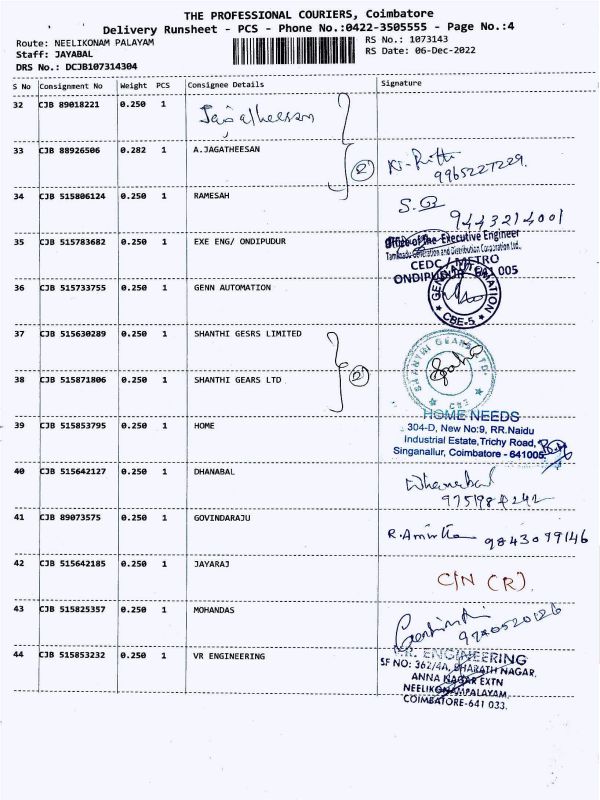 THE PROFESSIONAL COURIERS, Coimbatore
Delivery Runsheet - PCS - Phone No.:0422-3505555 - Page No.:4
Route: NEELIKONAM PALAYAM
RS No.: 1073143
Staff: JAYABAL
RS Date: 06-Dec-2022
DRS No.: DCJB107314304
S No Consignment No Weight PCS Consignee Details Signature
32 CJB 89018221 0.250 1 Jagatheesan
33 CJB 88926506 0.282 1 A.JAGATHEESAN (2)
9965227229.
34 CJB 515806124 0.250 1 RAMESAH
9443214001
35 CJB 515783682 0.250 1 EXE ENG/ ONDIPUDUR
Office of the Executive Engineer
Tamilnadu Generation and Distribution Corporation Ltd.,
CEDC / METRO
ONDIPUDUR - 641 005
36 CJB 515733755 0.250 1 GENN AUTOMATION
GENN AUTOMATION
CBE-5
37 CJB 515630289 0.250 1 SHANTHI GESRS LIMITED
38 CJB 515871806 0.250 1 SHANTHI GEARS LTD (2)
SHANTHI GEARS LTD.
CBE
39 CJB 515853795 0.250 1 HOME
HOME NEEDS
304-D, New No:9, RR.Naidu
Industrial Estate,Trichy Road,
Singanallur, Coimbatore - 641005.
40 CJB 515642127 0.250 1 DHANABAL
Dhanabal
41 CJB 89073575 0.250 1 GOVINDARAJU
R.Amirtha 9843099146
42 CJB 515642185 0.250 1 JAYARAJ
C/N (R).
43 CJB 515825357 0.250 1 MOHANDAS
44 CJB 515853232 0.250 1 VR ENGINEERING
V.R. ENGINEERING
SF NO: 362/4A, BHARATH NAGAR,
ANNA NAGAR EXTN
NEELIKONAMPALAYAM,
COIMBATORE-641 033.